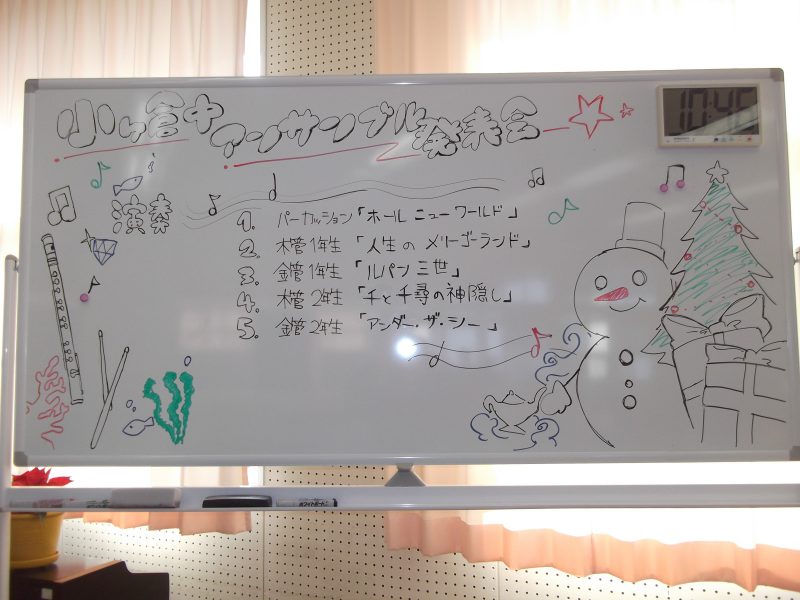 小ヶ倉中 アンサンブル発表会
10:45
演奏
1. パーカッション「ホール ニュー ワールド」
2. 木管1年生「人生の メリーゴーランド」
3. 金管1年生「ルパン三世」
4. 木管2年生「千と千尋の神隠し」
5. 金管2年生「アンダー・ザ・シー」